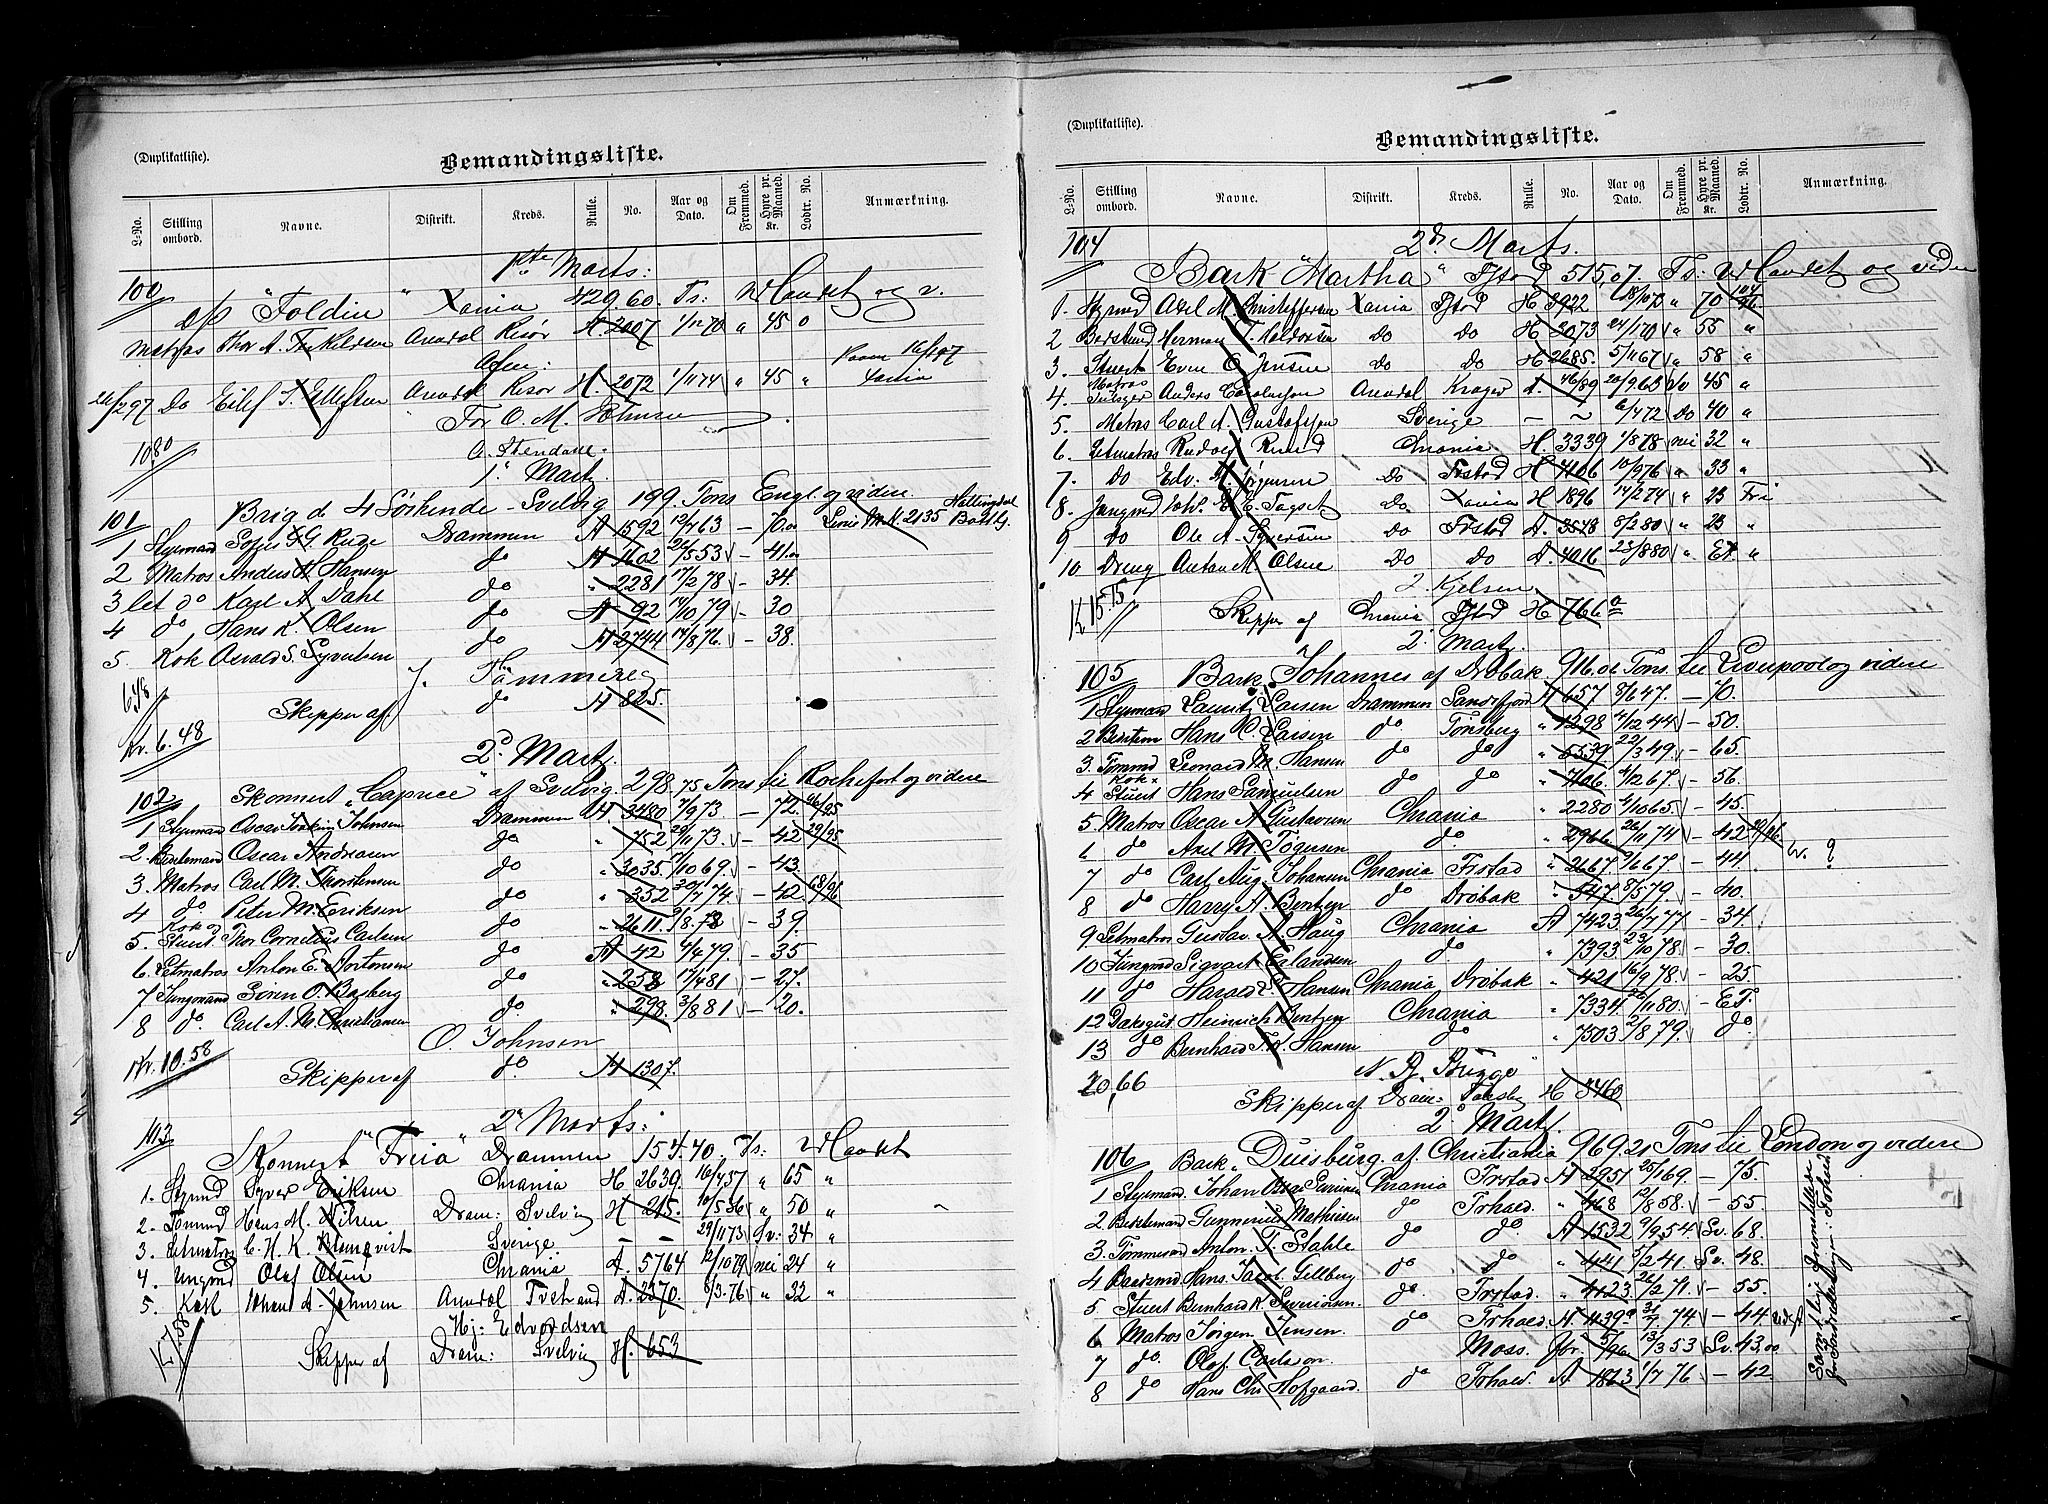 (Duplikatliste).
Bemandingsliste.
L-No. Stilling ombord. Navne. Distrikt. Kreds. Rulle. No. Aar og Dato. Om Fremmed. Hyre pr. Maaned. Kr. Lodtr. No. Anmærkning.
1ste Marts:
100
D/S "Foldin" Xania 429,60. Ts: Udlandet og v.
Matros Arendal Risør A. 2007 1/12 70 " 45 0
Afm:
26/2 97 Do Eilef S. Ellefsen Arendal Risør H. 2072 1/11 74 " 45 "
For O. M.
1080
1" Marts
101 Brig de 4 Søskende - Svelvig 199. Tons Engl. og videre.
1 Styrmand G. Rude Drammen A 1592 12/4 63 - 70.00
2 Matros Anders H. Hansen do A 1602 5 53 - 41.00
3 Let do Karl A. Dahl do " 2281 17/2 78 - 34.
4 do Hans K. Olsen do A 92 14/10 79 - 30
5. Kok Osvald S. Syvertsen do A 2744 14/8 76 - 38.
J.
Skipper af do A 825.
Kr. 6.48
2d Marts.
102 Skonnert "Caprice" af Svelvig 298,75 Tons til Rochefort og videre
1 Styrmand Oscar Joakim Johnsen Drammen A 3480 7/9 73 - 72. 96/95
2. Bestemand Oscar Andreasen do " 752 20/11 73. - 42 29/95
3. Matros Carl M. Thorstensen do " 3035 17/10 69 - 43.
4 do Peter M. Eriksen do " 352 30/7 74. - 42. 68/96
5. Kok og Stuert Thor Cornelius Carlsen do " 2611. 9/8. 73 - 39
6. Letmatros Anton E. Mortensen do A 42 4/4 79. - 35
7 Jungmand Søren O. Basberg do " 258 17/4 81 - 27.
8 do. Carl A. M. Christiansen do " 298. 3/8 81 - 20.
O. Johnsen
Kr. 10.58 Skipper af do. A 1307.
2" Marts:
103 Skonnert "Freia" Drammen 154.40. Ts: Udlandet
1. Stymd Syver Eriksen Chrania H 2639. 16/4 57 " 65 "
2. Tømmd Hans M. Nilsen Dram: Svelvig H 215. 10/5 36 " 50 "
3. Letmatros C. H. K. Blomqvist Sverige - - 29/11 73 Sv: 34 "
4. Ungmd Olaf Olsen Chrania A. 5764 12/10 79 nei 24 "
5. Kok Johan A. Johnsen Arendal Tvestrand A. 2370 8/3. 76 " 32 "
Hj: Edvardsen
K 7,58 Skipper af Dram: Svelvig H. 653
(Duplikatliste).
Bemandingsliste.
L-No. Stilling ombord. Navne. Distrikt. Kreds. Rulle. No. Aar og Dato. Om Fremmed. Hyre pr. Maaned. Kr. Lodtr. No. Anmærkning.
104 2d Marts.
Bark "Martha" Fstad 515,07. Ts: Udlandet og videre
1. Stymd Axel M. Christoffersen Xania Fstad H 3922 " 70
2 Bestmd Herman T. Halvorsen Do Do H 3073 24/1 70 " 55 "
3. Stuert Even O. Jensen do Do H 2685. 5/11 67 " 58 "
4. Matros Anders Arendal Kragerø A. 46/89 20/9 63 45 "
5. Matros Carl A. Gustafsson Sverige - ~ 6/4 72 Do 40 "
6. Letmatros Rudolf Rund Chrania H. 3339 1/8 78 nei 32 "
7. Do Edv. M. Jørgensen Do Frstad H 4106 10/9 76 " 33 "
8. Jungmd E. Fagst do Xania H 1896 14/2 74 " 23 Fri
9 do Ole A. Syversen do Frstad A. 3548 5/2 80 " 23 "
10 Dreng Anton M. Olsen Do Do A. 4016 23/8 80 " Et. "
J. Kjelsen
K 15.75 Skipper af Chrania Fstad H 766
2. Marts.
105 Bark "Johannes" af Drøbak. 916.01 Tons til Liverpool og videre
1 Styrmand Lauritz Larsen Drammen Sandefjord A 657 8/6 47. - 70.
2 Bestem Hans C. Larsen do. Tønsberg " 1298 4/12 44 - 50.
3. Tømmd Leonard M. Hansen do do " 5539 22/3 49 - 65.
4 Kok x Stuert Hans Samuelsen do do " 7106. 4/12 67. - 56.
5 Matros Oscar A. Gustavsen Chrania " 2280 9/10 65. - 45.
6 do Axel M. Jørgensen do. " 2966 26/11 74 - 42
7 do Carl Aug. Johansen Chrania Frstad " 2667. 9/6 67. - 44.
8 do Harry A. Berntzen do Drøbak " 547 8/5 79. - 40.
9 Letmatros Gustav A. Haug Chrania A 7423 26/7 77 - 34.
10 Jungmd Sigvart Erlandsen do " 7393 23/10 78 - 30.
11 do Harald E. Hansen Chrania Drøbak " 421 16/9 78. - 25
12 Dæksgut Heinrich Berntzen Chrania " 7334. 26/11 80. - ET.
13 do Bernhard J. A. Hansen do. " 7503 2/8 79. do.
N. A. Bugge
20,66 Skipper af Dram: H 3460
2. Marts.
106 Bark "Duisburg" af Christiania 969.21 Tons til London og videre
1 Styrmand. Johan Chrania Frstad A 2951 25/1 69. - 75.
2. Bestemand Gunnerius Mathisen do Frhald. " 468 12/8 58. - 55.
3. Tømmermand Anton. F. Stahle do do. A 1532 9/9. 54 Sv. 68.
4 Baadsmd Hans. Jacob. Gellberg do. do " 441 5/2 41. Sv. 48.
5 Stuert Bernhard K. Sversiensen. do Frstad. " 4123. 26/2 71. - 55.
6 Matros Jørgen Jensen. do Frhald. A 439 31/7. 74. - 44
7 do. Olof Carlsson. Moss. 5/96. 13/3 53 Sv. 43.00
8 do Hans Chr. Hofgaard. do Frhald. A 1863 1/7 76 - 42